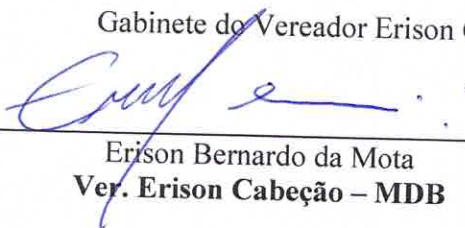 Gabinete do Vereador Erison
Erison Bernardo da Mota
Ver. Erison Cabeção – MDB